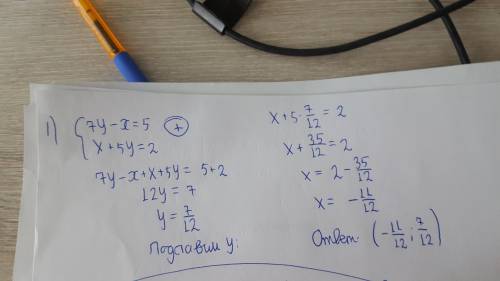 1) { 7y - x = 5 (+)
x + 5y = 2
7y - x + x + 5y = 5 + 2
12y = 7
y = 7/12
Подставим y:
x + 5 · 7/12 = 2
x + 35/12 = 2
x = 2 - 35/12
x = - 11/12
Ответ: (- 11/12 ; 7/12)